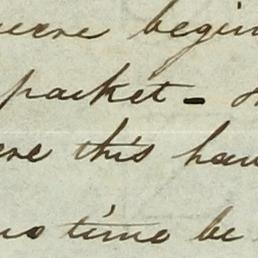 were begin
packet - 
ere this hav
us time be